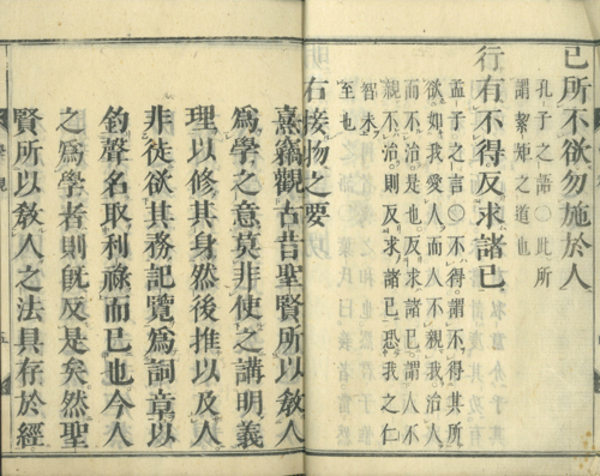 己所不欲勿施於人
孔子之語○此所
謂絜矩之道也
行有不得反求諸己
孟子之言○不得謂不得其所
欲如我愛人而人不親我治人
而不治是也反求諸己謂人不
親不治則反求諸己恐我之仁
智未
至也
右接物之要
熹竊觀古昔聖賢所以敎人
爲學之意莫非使之講明義
理以修其身然後推以及人
非徒欲其務記覽爲詞章以
釣聲名取利祿而已也今人
之爲學者則旣反是矣然聖
賢所以敎人之法具存於經